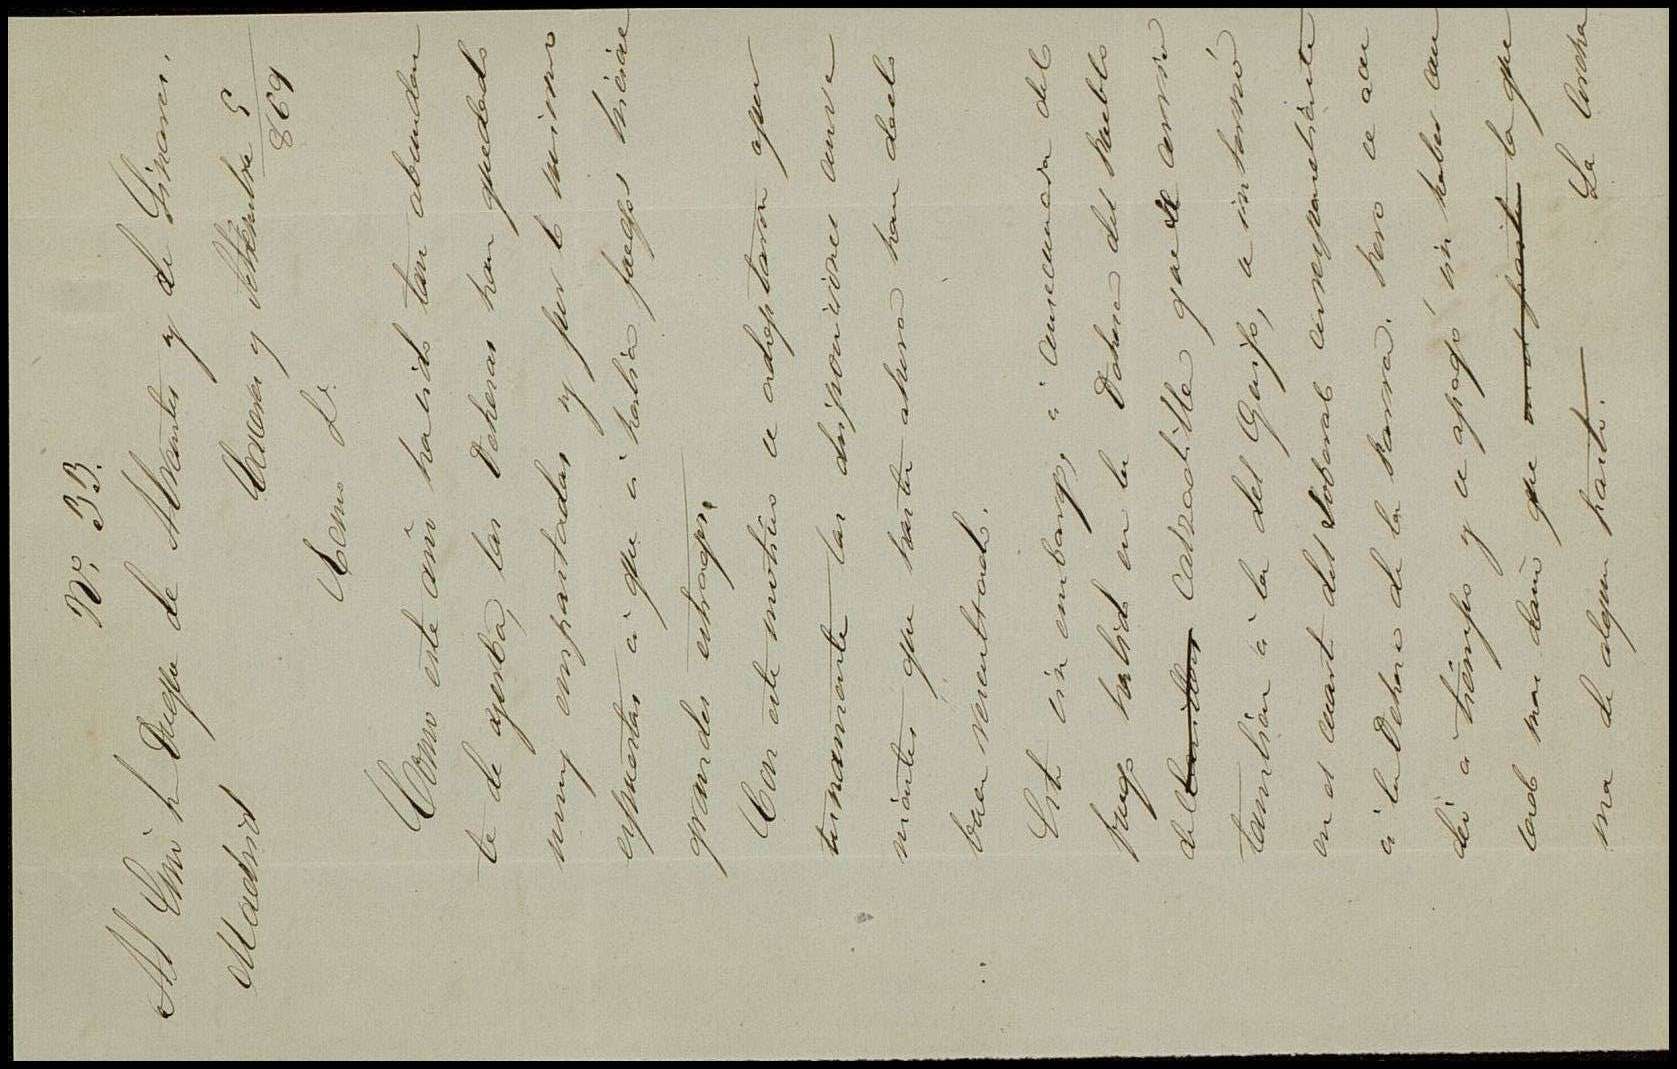 Nº. 33.
Al Exmo Sr Duque de Abrantes y de Linares.
Madrid
Caceres y Setiembre 5
869
Exmo Sr.
Como este año ha sido tan abundan
te de yerba, las Dehesas han quedado
muy empastadas y por lo mismo
espuestas á que si habia fuego hiciese
grandes estragos.
Con este motivo se adoptaron opor
tunamente las disposiciones conve
nientes que hasta ahora han dado
buen resultado.
Esto sin embargo, á consecuencia del
fuego habido en la Dehesa del pueblo
del Casar de que se corrio
tambien á la del Guijo, se internó
en el cuarto del correspondiente
á la Dehesa de la Parra, pero se acu
dió á tiempo y se apagó sin haber cau
sado mas daño que lo que
ma de algun pasto. La